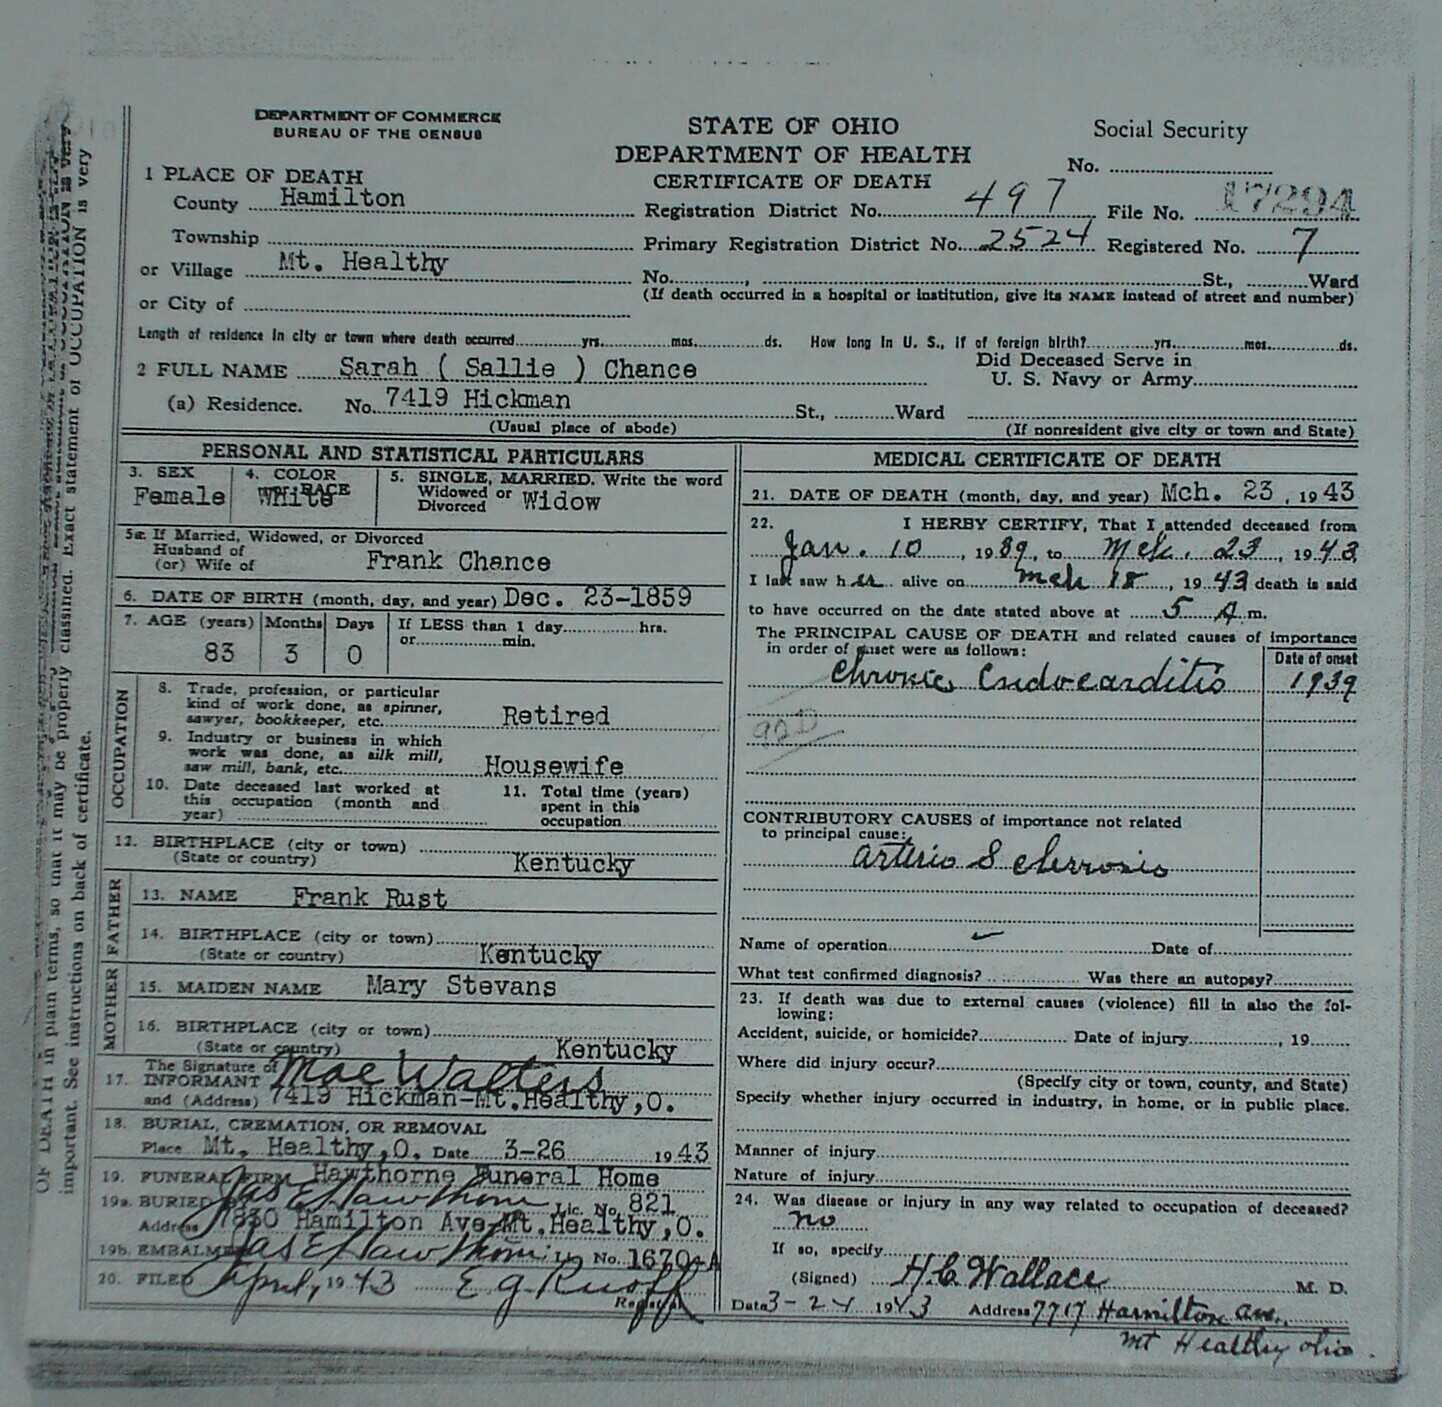 DEPARTMENT OF COMMERCE
BUREAU OF THE CENSUS
STATE OF OHIO
DEPARTMENT OF HEALTH
CERTIFICATE OF DEATH
Social Security
No.
1 PLACE OF DEATH
County Hamilton
Registration District No. 497 File No. 17294
Township
Primary Registration District No. 2524 Registered No. 7
or Village Mt. Healthy
No. , St., Ward
(If death occurred in a hospital or institution, give its NAME instead of street and number)
or City of
Length of residence in city or town where death occurred yrs. mos. ds. How long in U. S., if of foreign birth? yrs. mos. ds.
2 FULL NAME Sarah ( Sallie ) Chance
Did Deceased Serve in
U. S. Navy or Army
(a) Residence. No. 7419 Hickman St., Ward
(Usual place of abode) (If nonresident give city or town and State)
PERSONAL AND STATISTICAL PARTICULARS
3. SEX
Female
4. COLOR
OR RACE
White
5. SINGLE, MARRIED. Write the word
Widowed or
Divorced
Widow
5a. If Married, Widowed, or Divorced
Husband of
(or) Wife of Frank Chance
6. DATE OF BIRTH (month, day, and year) Dec. 23-1859
7. AGE (years) Months Days If LESS than 1 day hrs.
or min.
83 3 0
OCCUPATION
8. Trade, profession, or particular
kind of work done, as spinner,
sawyer, bookkeeper, etc. Retired
9. Industry or business in which
work was done, as silk mill,
saw mill, bank, etc. Housewife
10. Date deceased last worked at
this occupation (month and
year)
11. Total time (years)
spent in this
occupation
12. BIRTHPLACE (city or town)
(State or country) Kentucky
FATHER
13. NAME Frank Rust
14. BIRTHPLACE (city or town)
(State or country) Kentucky
MOTHER
15. MAIDEN NAME Mary Stevans
16. BIRTHPLACE (city or town)
(State or country) Kentucky
The Signature of
17. INFORMANT Mae Walters
and (Address) 7419 Hickman-Mt.Healthy,O.
18. BURIAL, CREMATION, OR REMOVAL
Place Mt. Healthy,O. Date 3-26 1943
19. FUNERAL FIRM Hawthorne Funeral Home
19a. BURIED Jas E Hawthorn Lic. No. 821
Address 7830 Hamilton Ave, Mt.Healthy,O.
19b. EMBALMED Jas E Hawthorn Lic. No. 1670-A
20. FILED April, 1943 E G Ruoff
Registrar
MEDICAL CERTIFICATE OF DEATH
21. DATE OF DEATH (month, day, and year) Mch. 23, 1943
22. I HERBY CERTIFY, That I attended deceased from
Jan. 10, 1939, to Mch. 23, 1943
I last saw her alive on Mch 18, 1943 death is said
to have occurred on the date stated above at 5 A m.
The PRINCIPAL CAUSE OF DEATH and related causes of importance
in order of onset were as follows:
Date of onset
Chronic Endocarditis 1939
92D
CONTRIBUTORY CAUSES of importance not related
to principal cause:
Arterio Sclerrosis
Name of operation Date of
What test confirmed diagnosis? Was there an autopsy?
23. If death was due to external causes (violence) fill in also the fol-
lowing:
Accident, suicide, or homicide? Date of injury , 19
Where did injury occur?
(Specify city or town, county, and State)
Specify whether injury occurred in industry, in home, or in public place.
Manner of injury
Nature of injury
24. Was disease or injury in any way related to occupation of deceased?
no
If so, specify
(Signed) H.C. Wallace M. D.
Date 3-24 1943 Address 7717 Hamilton Ave.
Mt Healthy Ohio.
OF DEATH in plain terms, so that it may be properly classified. Exact statement of OCCUPATION is very
important. See instructions on back of certificate.